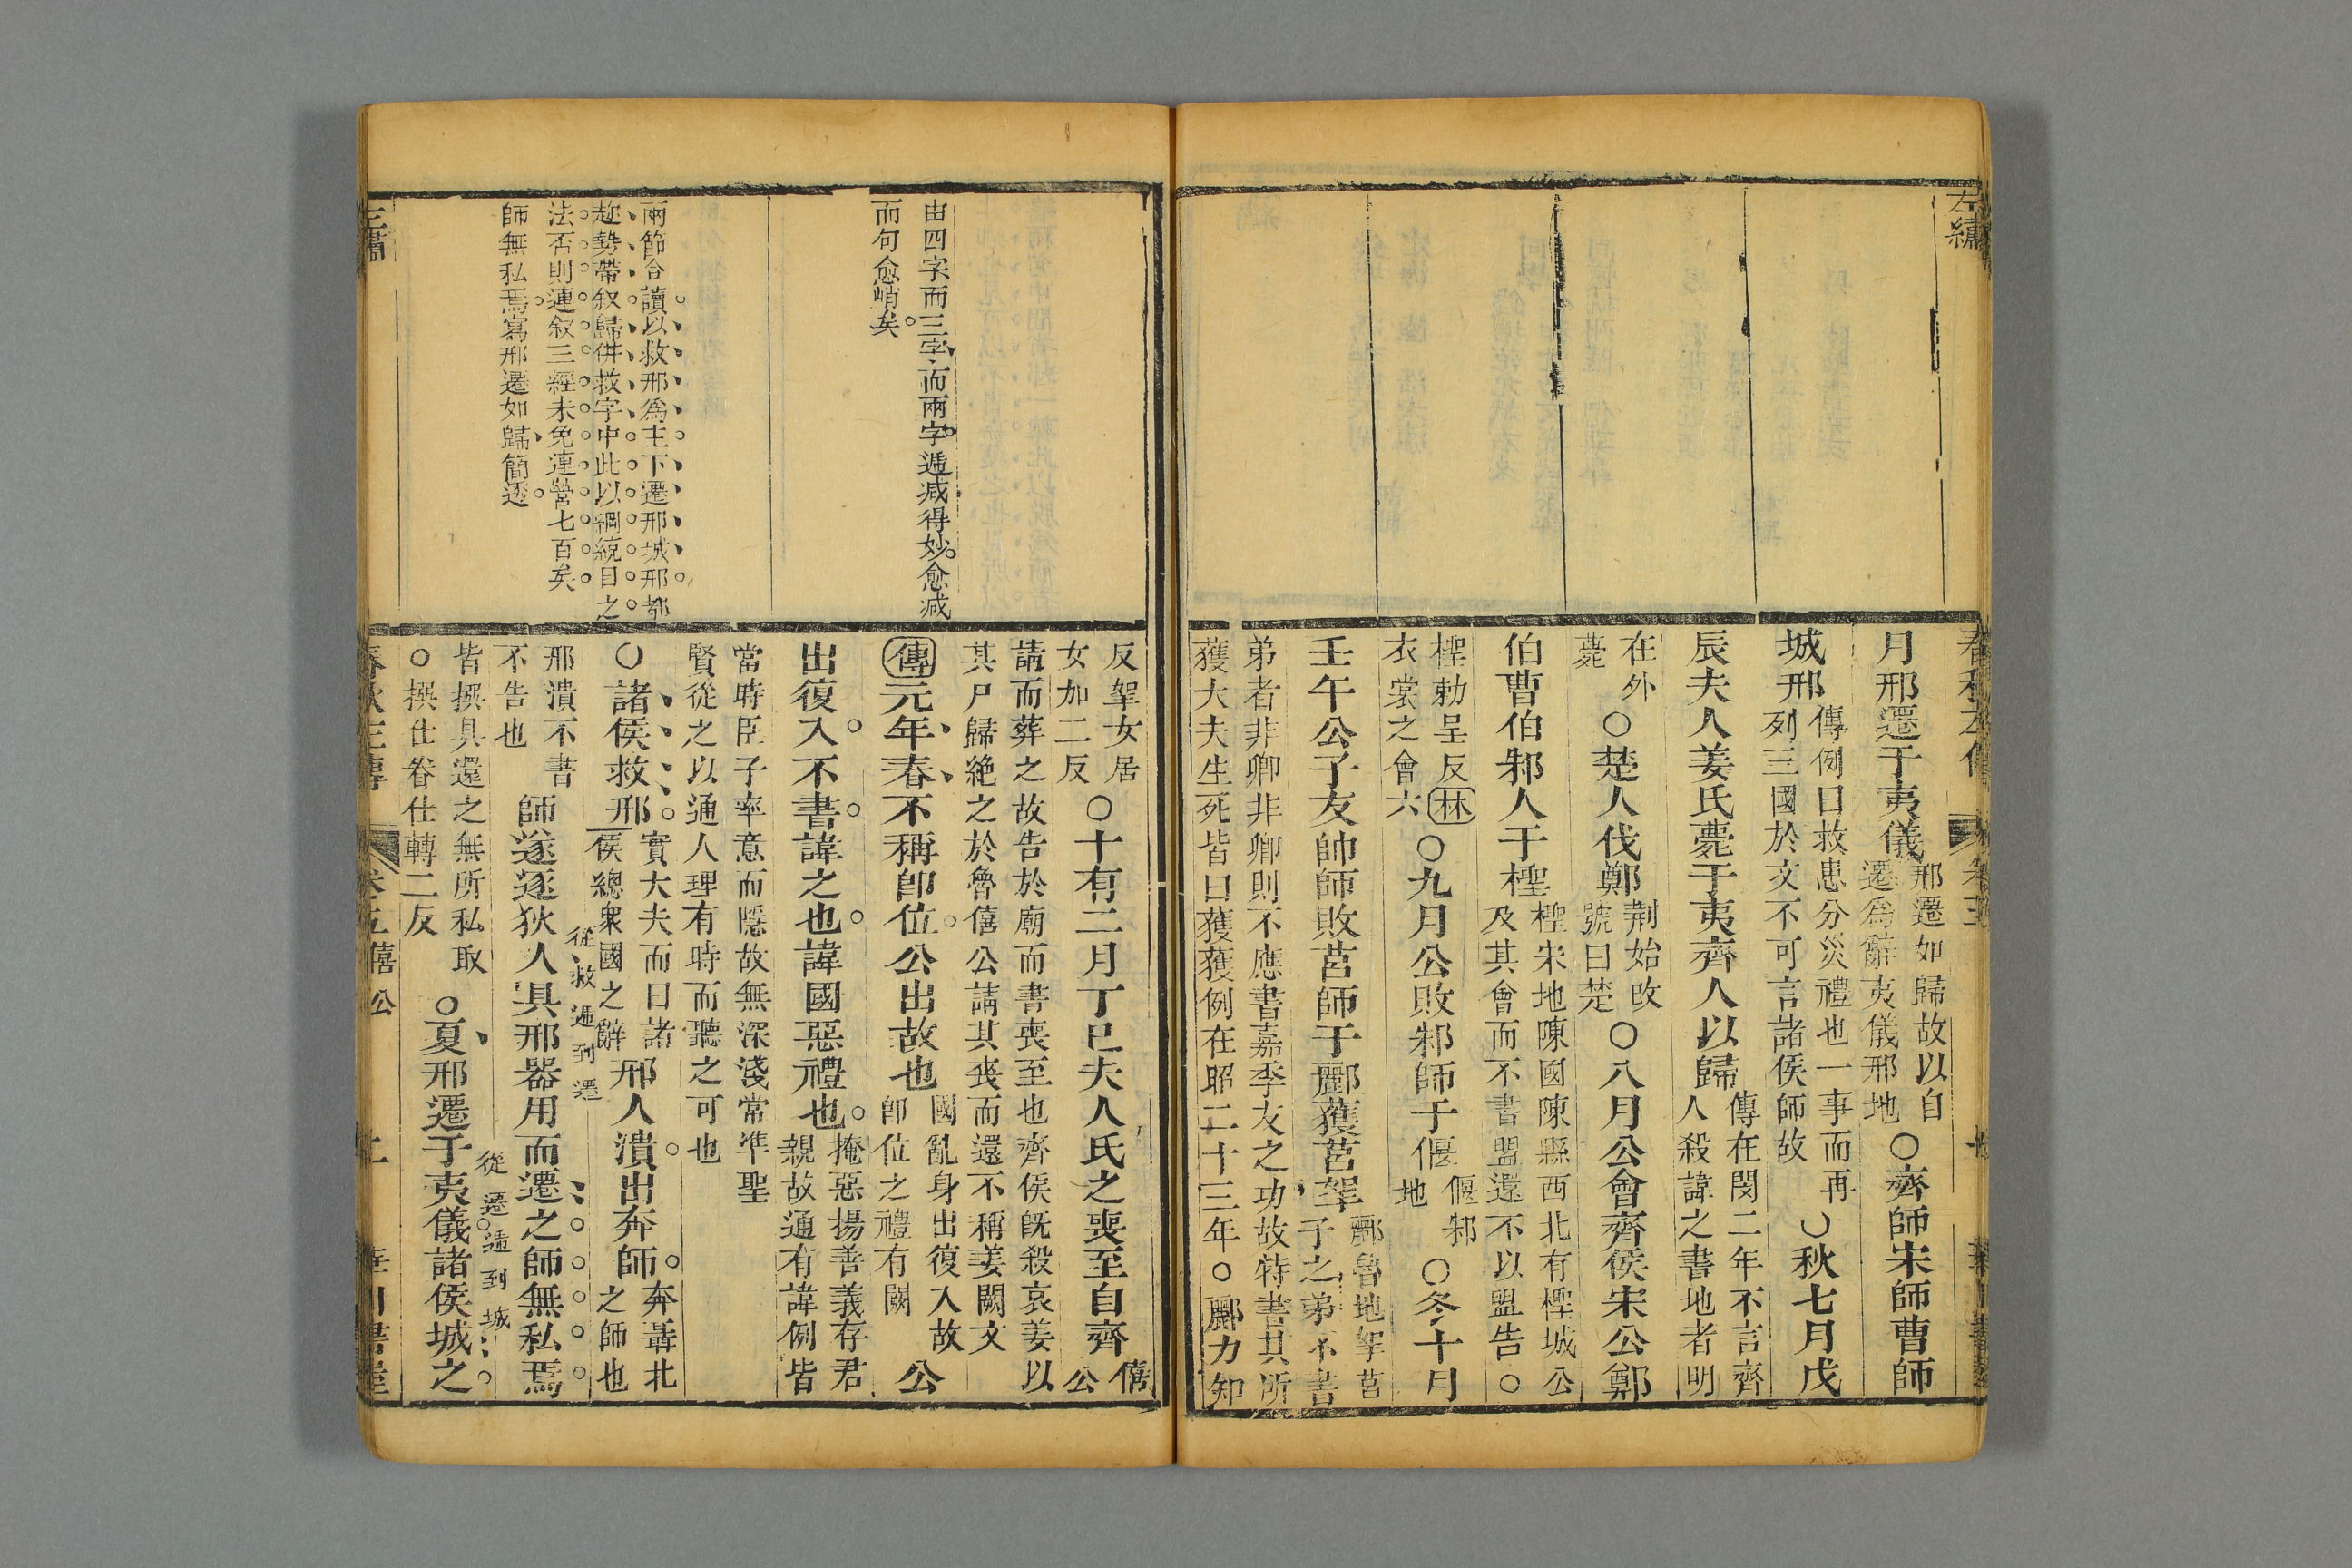 左繡
月邢遷于夷儀
邢遷如歸故以自
遷爲辭夷儀邢地
○齊師宋師曹師
城邢
傳例曰救患分災禮也一事而再
列三國於文不可言諸侯師故
○秋七月戊
辰夫人姜氏薨于夷齊人以歸
傳在閔二年不言齊
人殺諱之書地者明
在外
薨
○楚人伐鄭
荆始改
號曰楚
○八月公會齊侯宋公鄭
伯曹伯邾人于檉
檉宋地陳國陳縣西北有檉城公
及其會而不書盟還不以盟告○
檉勅呈反林
衣裳之會六
○九月公敗邾師于偃
偃邾
地
○冬十月
壬午公子友帥師敗莒師于酈獲莒挐
酈魯地挐莒
子之弟不書
弟者非卿非卿則不應書嘉季友之功故特書其所
獲大夫生死皆曰獲獲例在昭二十三年○酈力知
由四字而三字而兩字遞减得妙愈减
而句愈峭矣
兩節合讀以救邢爲主下遷邢城邢都
趂勢帶叙歸併救字中此以綱統目之
法否則連叙三經未免連營七百矣
師無私焉寫邢遷如歸簡透
反挐女居
女加二反
○十有二月丁巳夫人氏之喪至自齊
僖
公
請而葬之故告於廟而書喪至也齊侯旣殺哀姜以
其尸歸絶之於魯僖公請其喪而還不稱姜闕文
傳元年春不稱卽位公出故也
國亂身出復入故
卽位之禮有闕
公
出復入不書諱之也諱國惡禮也
掩惡揚善義存君
親故通有諱例皆
當時臣子率意而隱故無深淺常準聖
賢從之以通人理有時而聽之可也
○諸侯救邢
實大夫而曰諸
侯總衆國之辭
邢人潰出奔師
奔聶北
之師也
邢潰不書
不告也
從救遞到遷
師遂逐狄人具邢器用而遷之師無私焉
皆撰具還之無所私取
○撰仕眷仕轉二反
從遷遞到城
○夏邢遷于夷儀諸侯城之
春秋左傳
卷五僖公
二
華川書屋